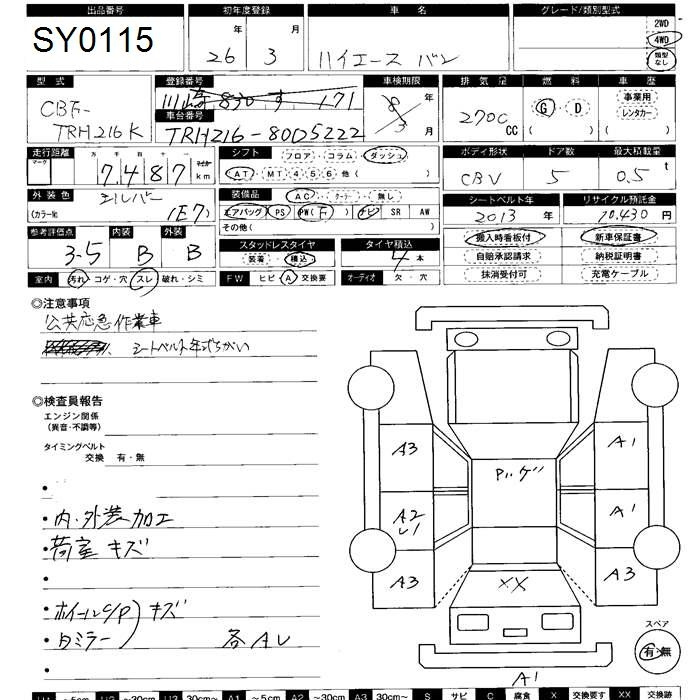 出品番号 初年度登録 車名 グレード/類別型式
SY0115 26年 3月 ハイエース バン 2WD 4WD 類型なし
型式 登録番号 車検期限 排気量 燃料 車歴
CBF- 川崎 830 す 171 8年 3月 2700CC G・D ( ) 事業用 レンタカー ( )
TRH216K 車台番号 TRH216-8005222
走行距離 シフト フロア・コラム・ダッシュ ボディ形状 ドア数 最大積載量
マーク 十万千百十マイル
7,487km AT・MT 4 5 6 他( ) CBV 5 0.5t
外装色 シルバー 装備品 AC・クーラー・無し シートベルト年 リサイクル預託金
(カラーNo. 1E7) エアバッグ PS PW(F) ナビ SR AW 2013 10,430円
その他( )
参考評価点 内装 外装 スタッドレスタイヤ タイヤ積込 搬入時看板付 新車保証書
3.5 B B 装着・積込 4本 自賠承認請求 納税証明書
室内 汚れ・コゲ・穴・スレ・破れ・シミ FW ヒビ・A・交換要 オーディオ 欠・穴 抹消受付可 充電ケーブル
◎注意事項
公共応急作業車
シートベルト年式ちがい
◎検査員報告
エンジン関係
(異音・不調等)
タイミングベルト
交換 有・無
・内・外装 加工
・荷室 キズ
・ホイールC/P キズ
・ミラー 各AL
A3 A1
Pルーゲ
A2 A1
L1
A3 XX A3
スペア
有・無
A1
U1 ~5cm U2 ~30cm U3 30cm~ A1 ~5cm A2 ~30cm A3 30cm~ S サビ C 腐食 X 交換要す XX 交換跡